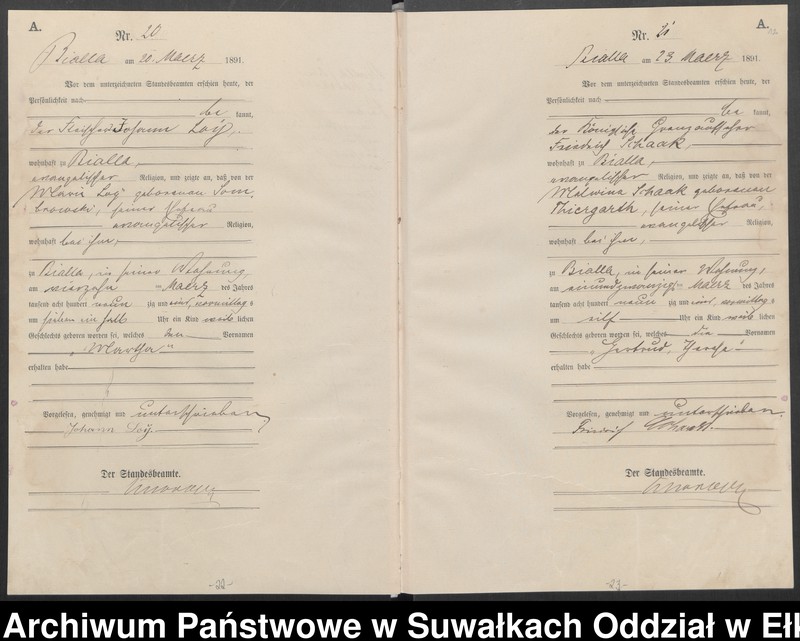 A.
Nr. 20
Bialla am 20. Maerz 1891.
Vor dem unterzeichneten Standesbeamten erschien heute, der
Persönlichkeit nach
be kannt,
der Fleischer Johann Loÿ,
wohnhaft zu Bialla,
evangelischer Religion, und zeigte an, daß von der
Marie Loÿ geborenen Dom
browski, seiner Ehefrau
evangelischer Religion,
wohnhaft bei ihm,
zu Bialla, in seiner Wohnung,
am vierzehn ten Maerz des Jahres
tausend acht hundert neun zig und eins, vormittag s
um sieben ein halb Uhr ein Kind weib lichen
Geschlechts geboren worden sei, welches den Vornamen
„Martha“
erhalten habe
Vorgelesen, genehmigt und unterschrieben
Johann Loÿ.
Der Standesbeamte.
-22-
A.
Nr. 21
Bialla am 23. Maerz 1891.
Vor dem unterzeichneten Standesbeamten erschien heute, der
Persönlichkeit nach
be kannt,
der Königliche Grenzaufseher
Friedrich Schaak,
wohnhaft zu Bialla,
evangelischer Religion, und zeigte an, daß von der
Malwina Schaak geborenen
Thiergarth, seiner Ehefrau,
evangelischer Religion,
wohnhaft bei ihm,
zu Bialla, in seiner Wohnung,
am einundzwanzigsten Maerz des Jahres
tausend acht hundert neun zig und eins, vormittag s
um eilf Uhr ein Kind weib lichen
Geschlechts geboren worden sei, welches die Vornamen
„Gertrud,
erhalten habe
Vorgelesen, genehmigt und unterschrieben.
Friedrich Schaak.
Der Standesbeamte.
-23-
Archiwum Państwowe w Suwałkach Oddział w Eł